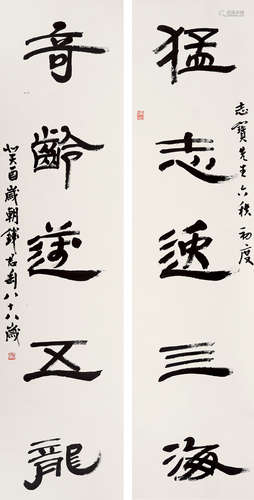 猛志逸三海
志寶先生六秩初度
奇齡邁五龍
癸酉歲朝錢君匋八十八歲